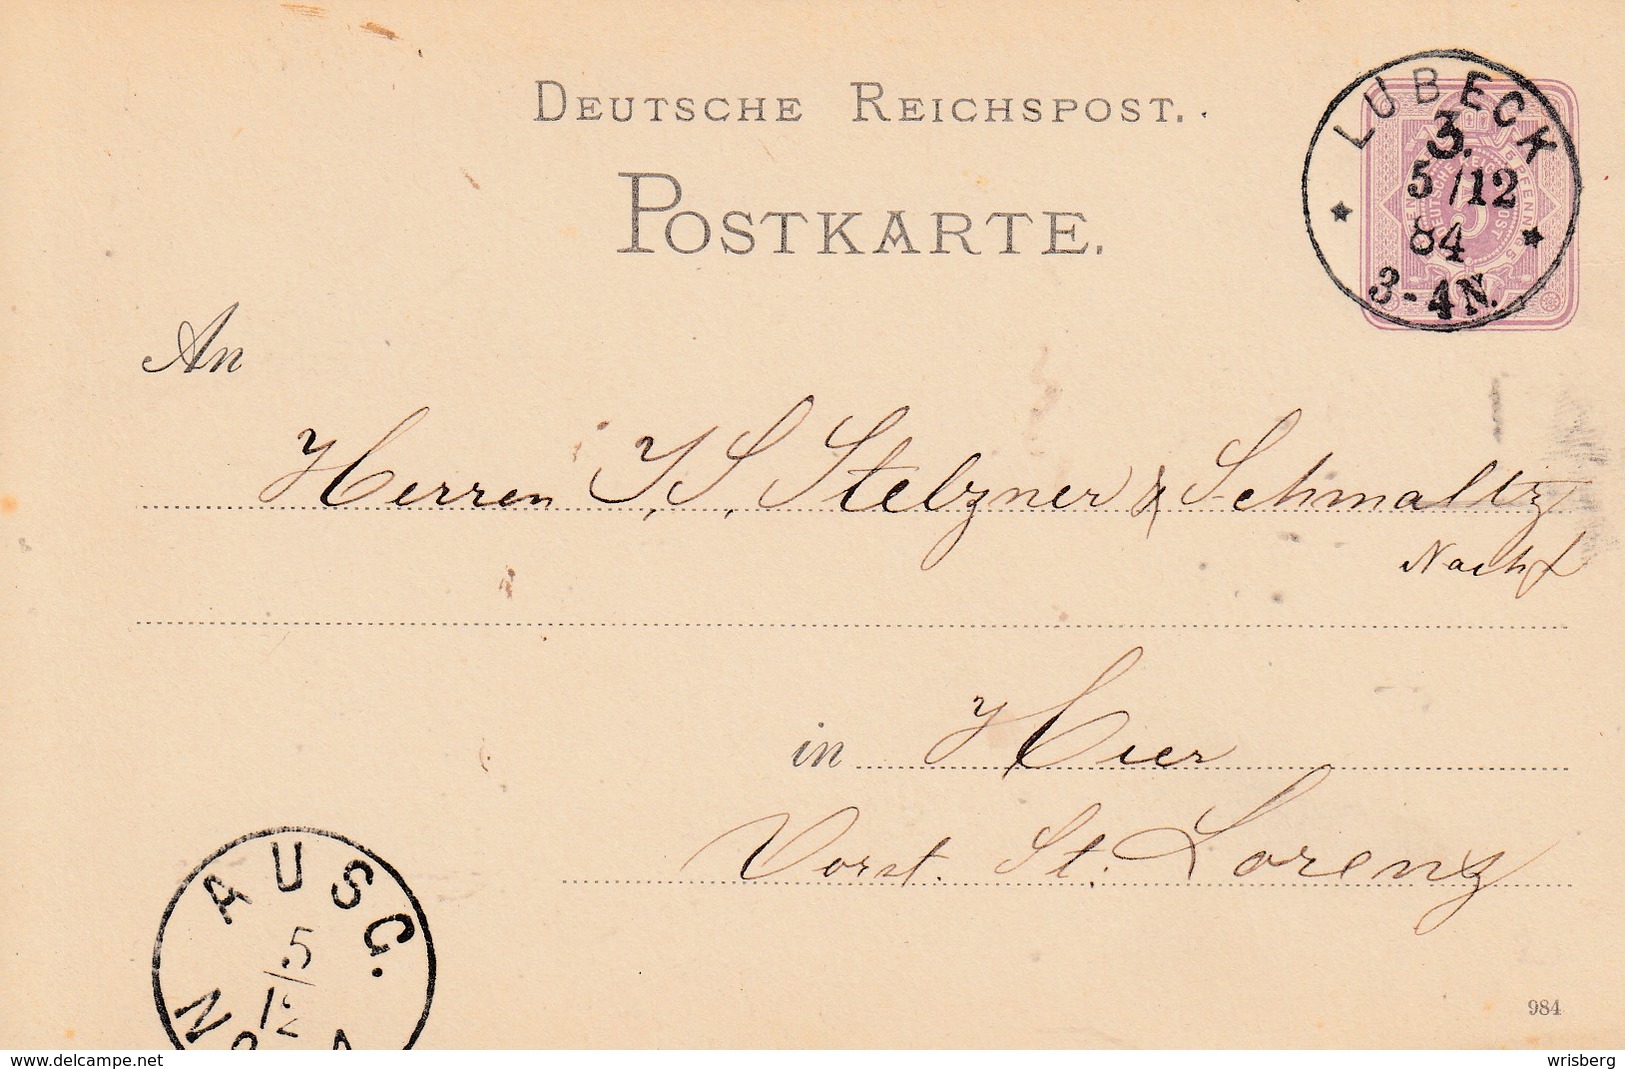 DEUTSCHE REICHSPOST.
POSTKARTE.
LUBECK
3.
5/12
84
3-4N.
An
Herren J. S. Stelzner & Schmaltz
Nachf
in Hier
Vorst. St. Lorenz
AUSG.
5
12
N
984
www.delcampe.net
wrisberg